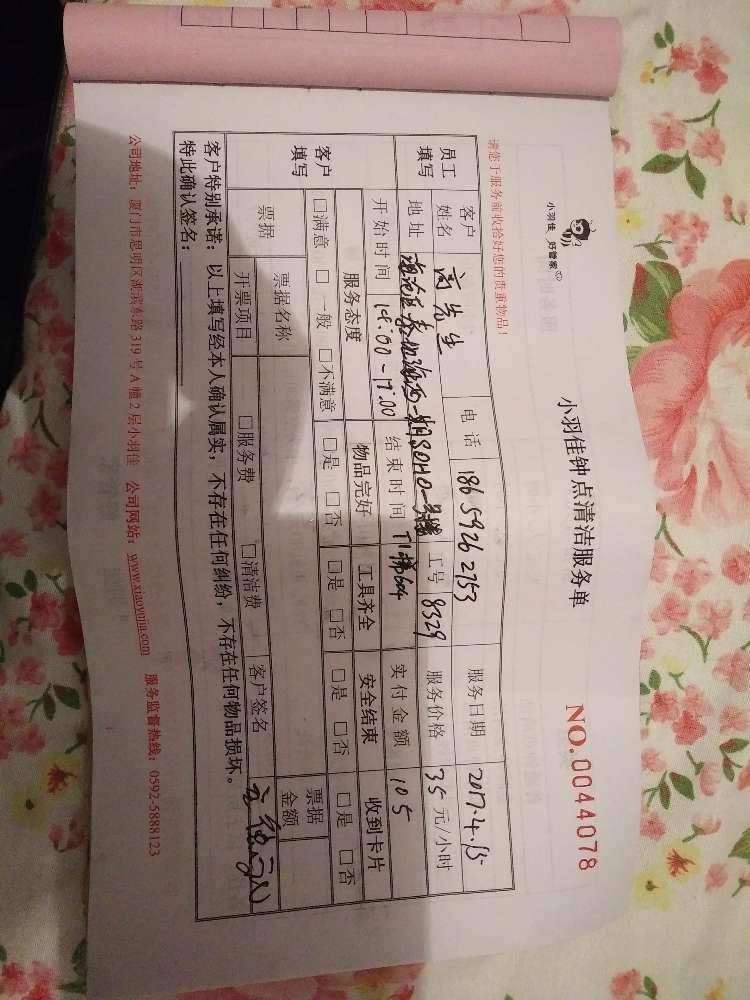 小羽佳 好管家
小羽佳钟点清洁服务单
NO.0044078
请您于服务前收拾好您的贵重物品！
员工填写 客户姓名 先生 电话 18659262753 服务日期 2017.4.15
地址 SOHO一号楼 工号 8329 服务价格 35 元/小时
T1梯604
开始时间 14:00-17:00 结束时间 实付金额 105
客户填写 服务态度 物品完好 工具齐全 安全结束 收到卡片
□满意 □一般 □不满意 □是 □否 □是 □否 □是 □否 □是 □否
票据 票据名称 票据金额
开票项目 □服务费 □清洁费 客户签名
客户特别承诺：以上填写经本人确认属实，不存在任何纠纷，不存在任何物品损坏。
特此确认签名：
公司地址：厦门市思明区湖滨东路319号A幢2层小羽佳 公司网站：www.xiaoyujia.com 服务监督热线：0592-5888123